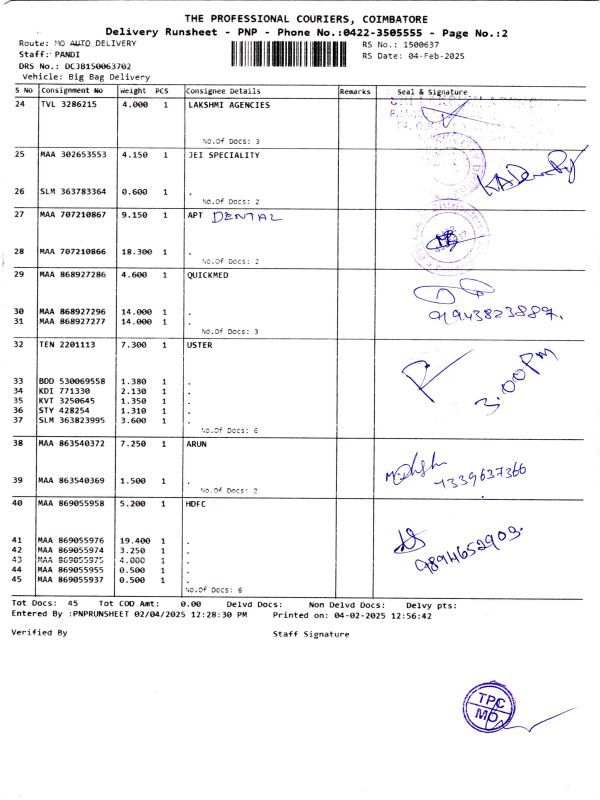 THE PROFESSIONAL COURIERS, COIMBATORE
Delivery Runsheet - PNP - Phone No.:0422-3505555 - Page No.:2
Route: MO AUTO DELIVERY RS No.: 1500637
Staff: PANDI RS Date: 04-Feb-2025
DRS No.: DCJB150063702
Vehicle: Big Bag Delivery
S No Consignment No Weight PCS Consignee Details Remarks Seal & Signature
24 TVL 3286215 4.000 1 LAKSHMI AGENCIES
No.Of Docs: 3
25 MAA 302653553 4.150 1 JEI SPECIALITY
26 SLM 363783364 0.600 1 .
No.Of Docs: 2
27 MAA 707210867 9.150 1 APT DENTAL
28 MAA 707210866 18.300 1 .
No.Of Docs: 2
29 MAA 868927286 4.600 1 QUICKMED
30 MAA 868927296 14.000 1 .
9194382388 9.
31 MAA 868927277 14.000 1 .
No.Of Docs: 3
32 TEN 2201113 7.300 1 USTER
3.00 PM
33 BDD 530069558 1.380 1 .
34 KDI 771330 2.130 1 .
35 KVT 3250645 1.350 1 .
36 STY 428254 1.310 1 .
37 SLM 363823995 3.600 1 .
No.Of Docs: 6
38 MAA 863540372 7.250 1 ARUN
7339637366
39 MAA 863540369 1.500 1 .
No.Of Docs: 2
40 MAA 869055958 5.200 1 HDFC
9894652909.
41 MAA 869055976 19.400 1 .
42 MAA 869055974 3.250 1 .
43 MAA 869055975 4.000 1 .
44 MAA 869055955 0.500 1 .
45 MAA 869055937 0.500 1 .
No.Of Docs: 6
Tot Docs: 45 Tot COD Amt: 0.00 Delvd Docs: Non Delvd Docs: Delvy pts:
Entered By :PNPRUNSHEET 02/04/2025 12:28:30 PM Printed on: 04-02-2025 12:56:42
Verified By Staff Signature
TPC
MO